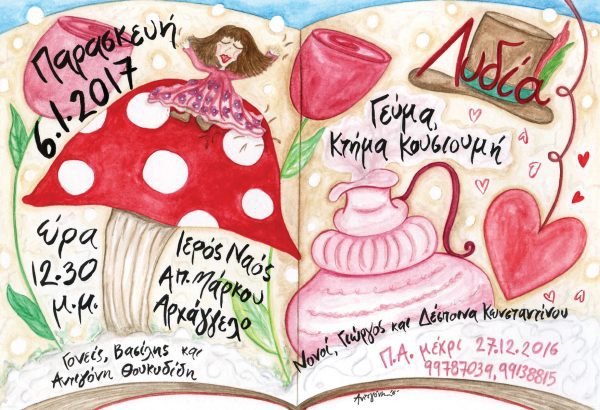 Παρασκευή
6.1.2017
Ώρα
12.30
μ.μ.
Ιερός Ναός
Απ. Μάρκου
Αρχάγγελο
Γονείς, Βασίλης και
Αντιγόνη Θουκυδίδη
Λυδία
Γεύμα,
Κτήμα Κουσιουμή
Νονοί, Γιώργος και Δέσποινα Κωνσταντίνου
Π.Α. μέχρι 27.12.2016
99787039, 99138815